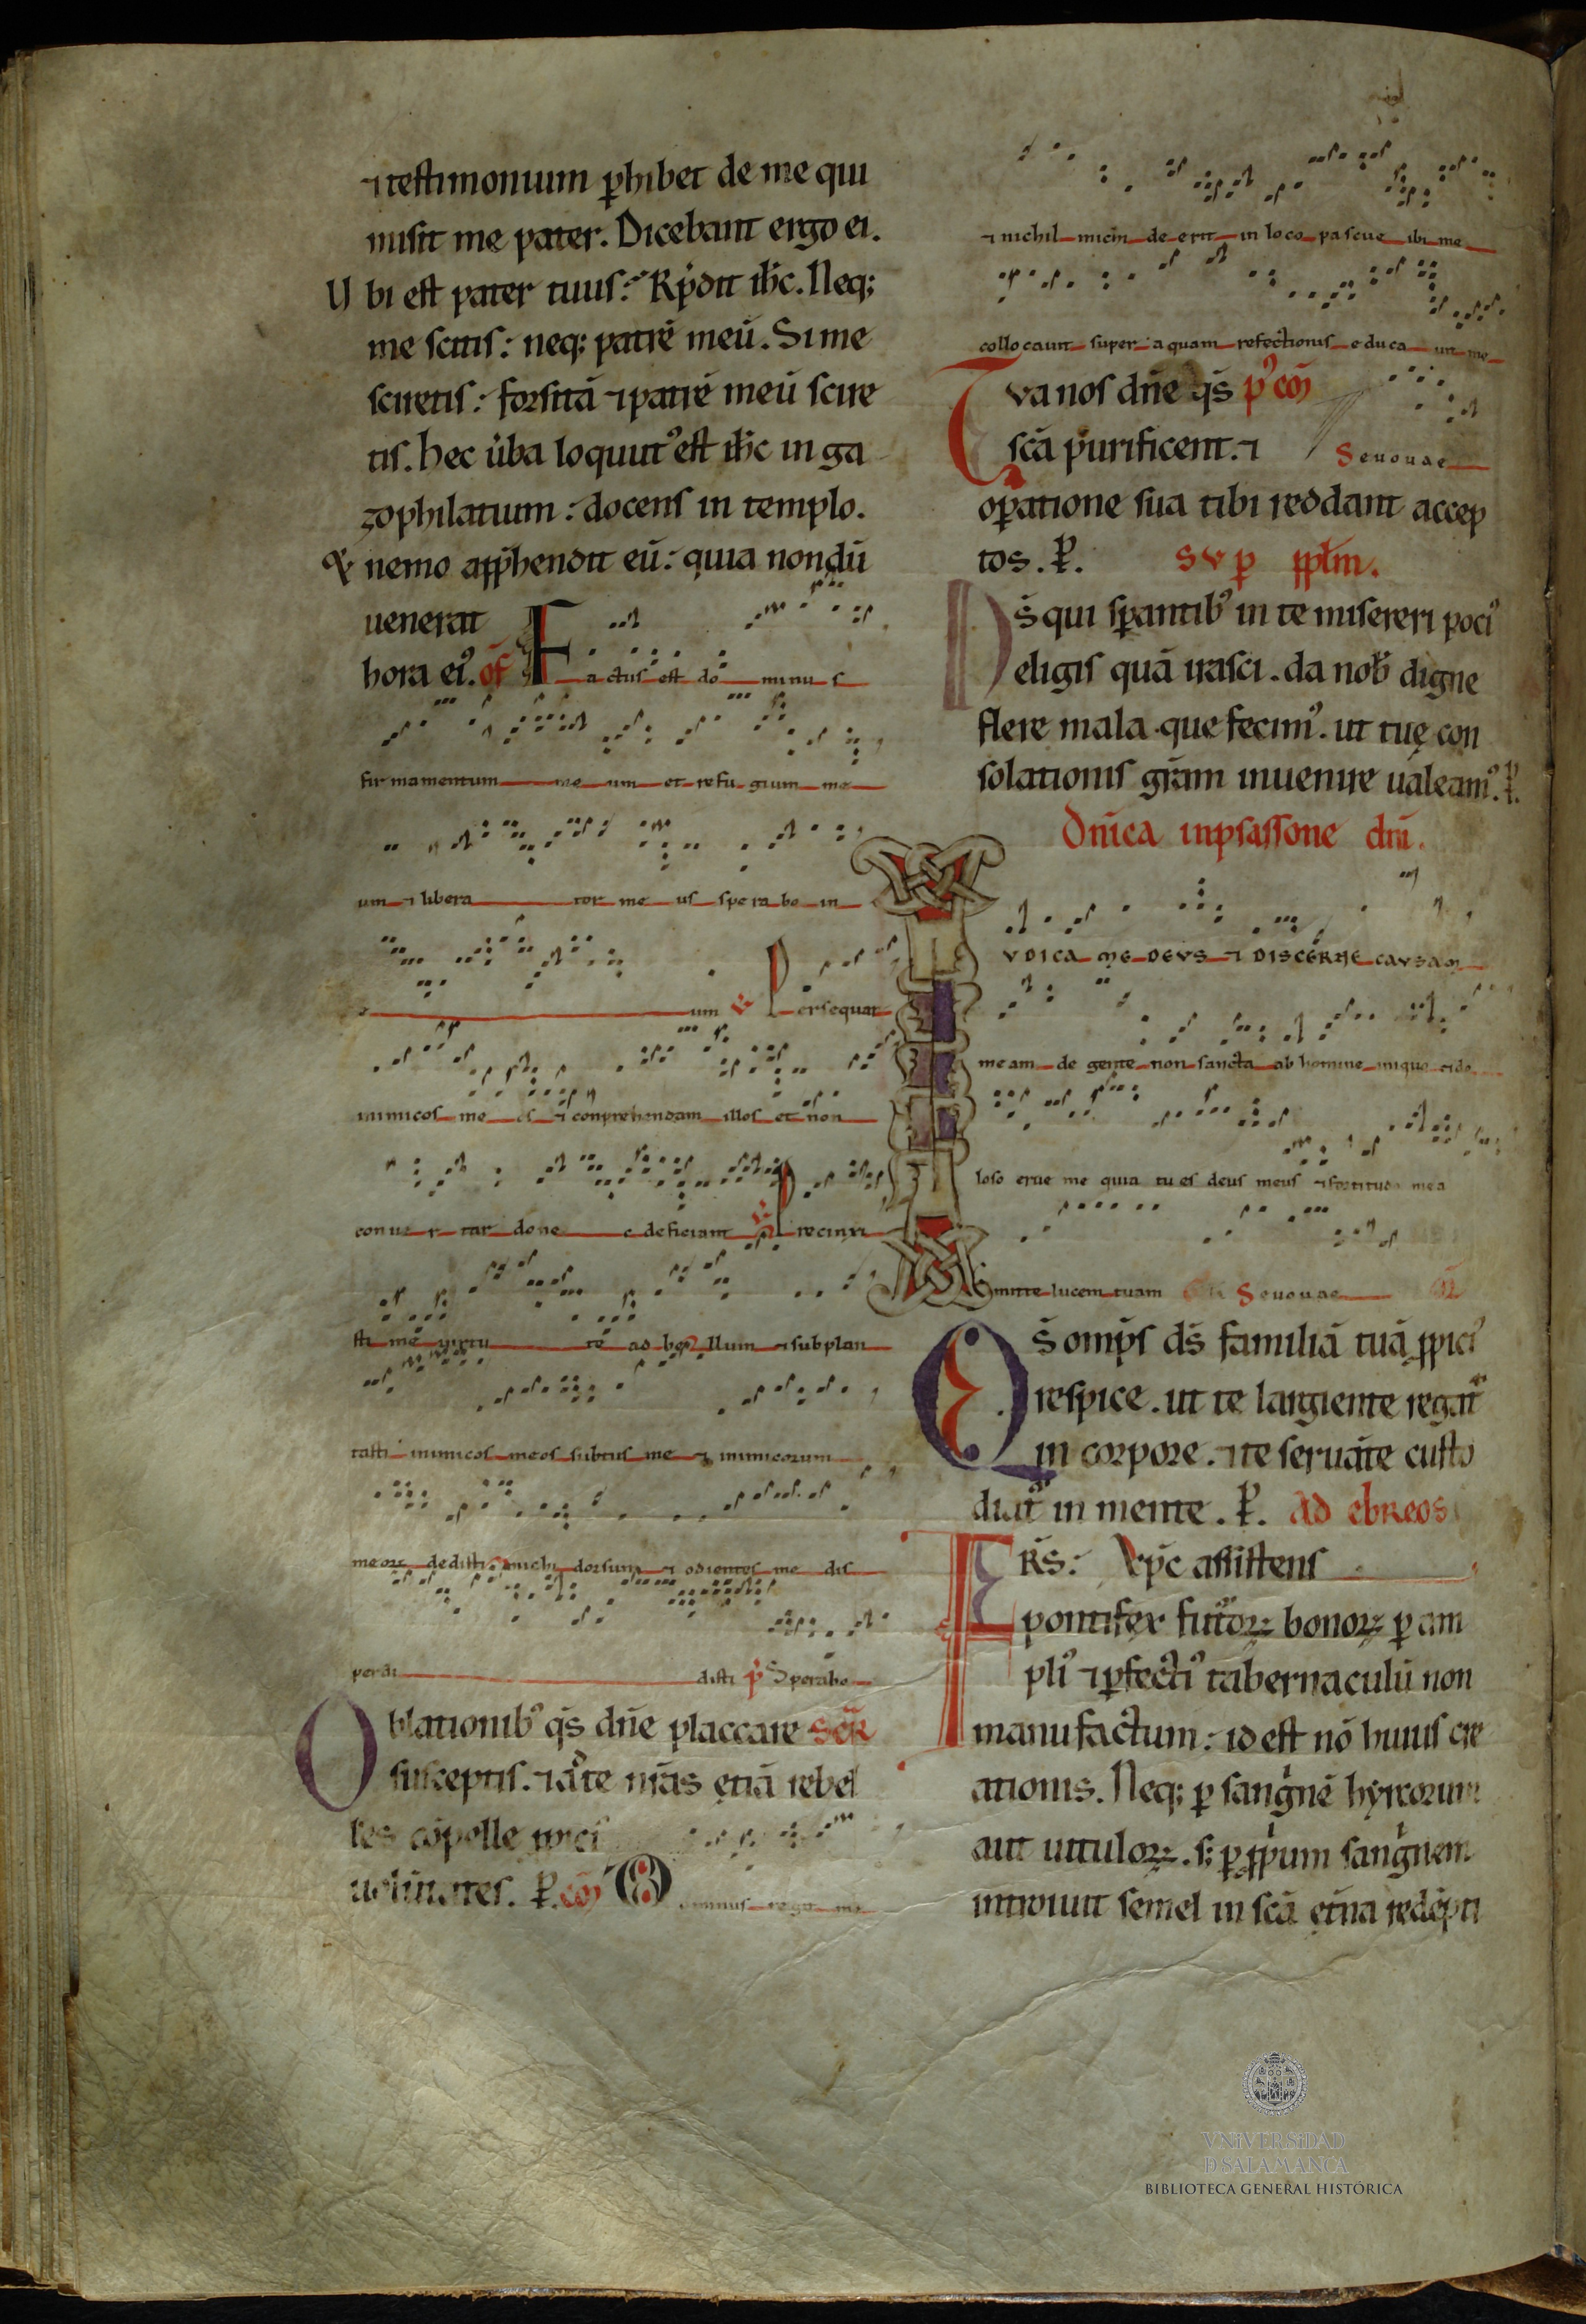 ⁊ testimonium ꝑhibet de me qui
misit me pater. Dicebant ergo ei.
U bi est pater tuus: Rṗdit ih̄c. Neq;
me scitis: neq; patrē meū. Si me
sciretis: forsitā ⁊ patrē meū scire
tis. hec ūba loquut᾿ est ih̄c in ga
zophilatium: docens in templo.
& nemo app̄hendit eū: quia nondū
uenerat
hora ei᾿. of̄ Factus est do minus
firmamentum me um et refugium me
um ⁊ libera tor me us sperabo in
e um ℣ Persequar
inimicos me os ⁊ conprehendam illos et non
conuer tar done c deficiant ℣ Precinxi
sti me uirtu te ad bellum ⁊ subplan
tasti inimicos meos subtus me ⁊ inimicorum
meoꝝ dedisti michi dorsum ⁊ odientes me dis
perdi disti p̄ Sperabo
Oblationib᾿ qs̄ dn̄e placcare sēcR
susceptis. ⁊ a te nr̄as etiā rebel
les cōpelle
uolūtates. ꝑ. cō Dominus regit me
⁊ nichil michi de erit in loco pascue ibi me
collocauit super aquam refectionis educa uit me
Tua nos dn̄e qs̄ p᾿ cō
scā purificent. ⁊ Seuouae
oꝑatione sua tibi reddant accep
tos. ꝑ. SVꝑ pplm̄.
Ds̄ qui sꝑantib᾿ in te misereri poci᾿
eligis quā irasci. da nob̄ digne
flere mala que fecim᾿. ut tuę con
solationis gr̄am inuenire ualeam᾿. ꝑ.
Dn̄ica inpsassone dn̄i.
IVDICA ME DEVS ⁊ DISCERNE CAVSAM
meam de gente non sancta ab homine iniquo ⁊ do
loso erue me quia tu es deus meus ⁊ fortitudo mea
Emitte lucem tuam Seuouae
Qs̄ omp̄s ds̄ familiā tuā ꝓpici᾿
respice. ut te largiente regat᾿
in corpore. ⁊ te seruāte custo
diat᾿ in mente. ꝑ. AD EBREOS
FRS̄: Xp̄c assistens
pontifex futuroꝝ bonoꝝ ꝑ am
pli᾿ ⁊ ꝑfecti᾿ tabernaculū non
manufactum: id est nō huius cre
ationis. Neq; ꝑ sangnē hyrcorum
aut uituloꝝ. s; ꝑ ꝓpium sangnem
introiuit semel in scā et̄na redēpti
VNiVERSiDAD
D SALAMANCA
BIBLIOTECA GENERAL HISTÓRICA